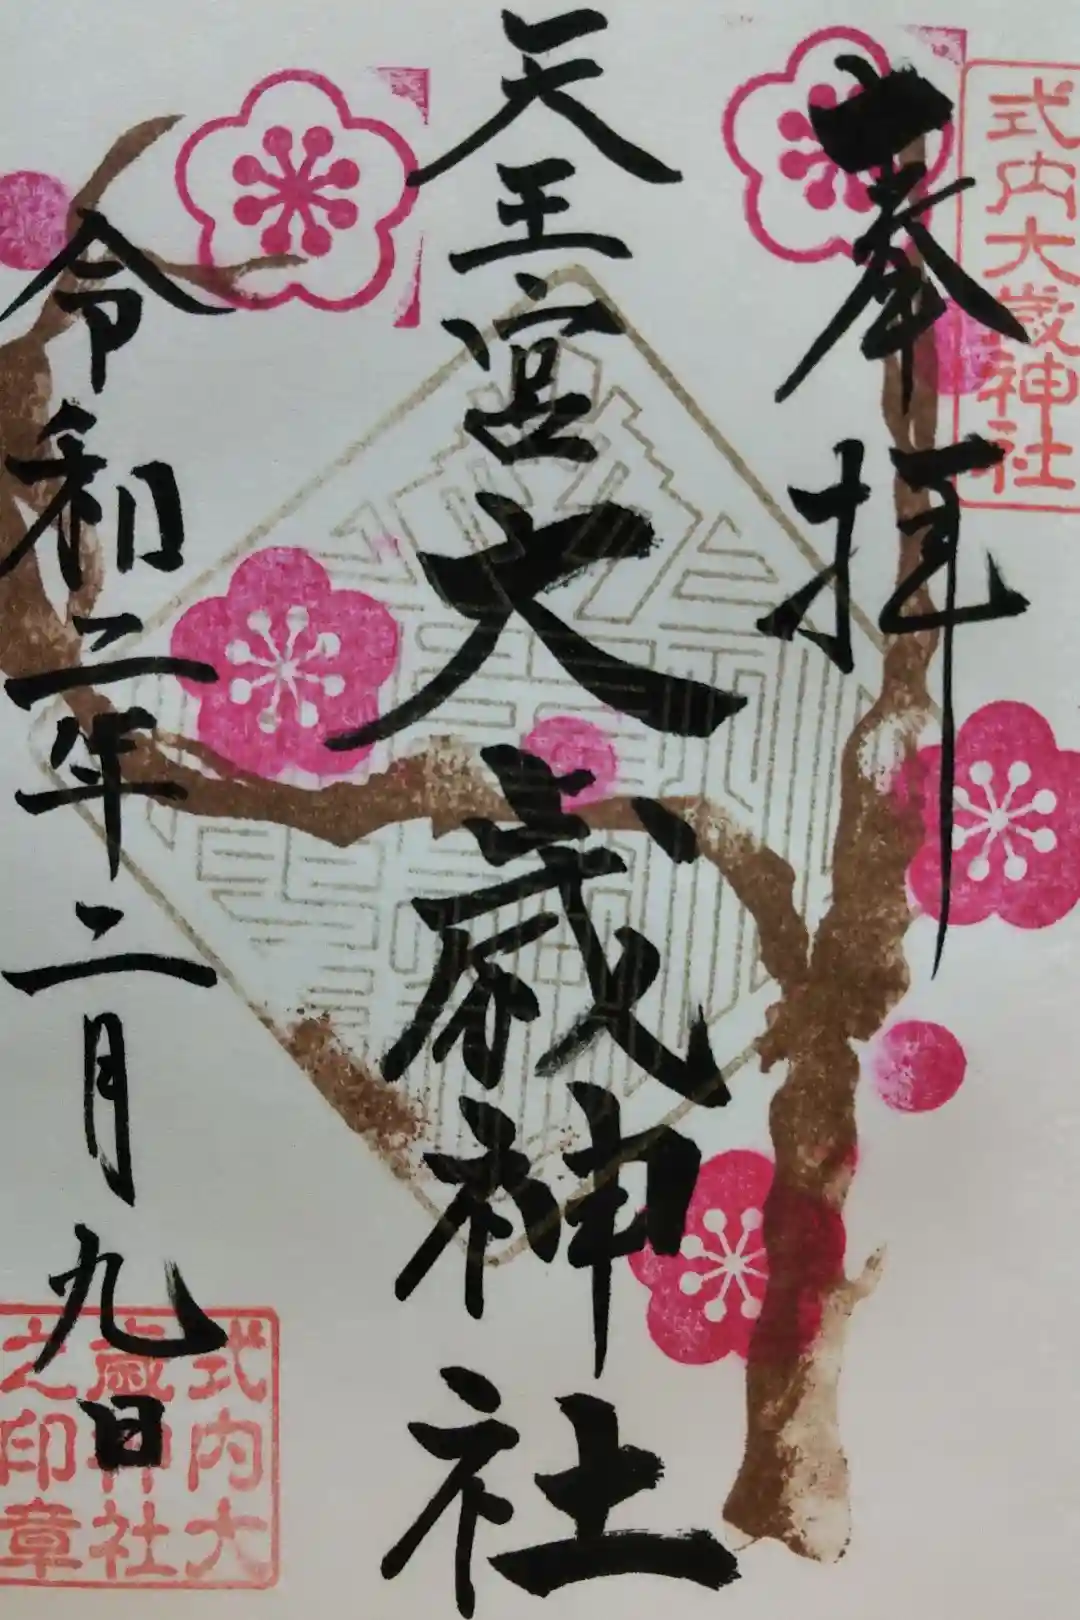 式内大歳神社
奉拝
天王宮大歳神社
令和二年二月九日
式内大
歳神社
之印章